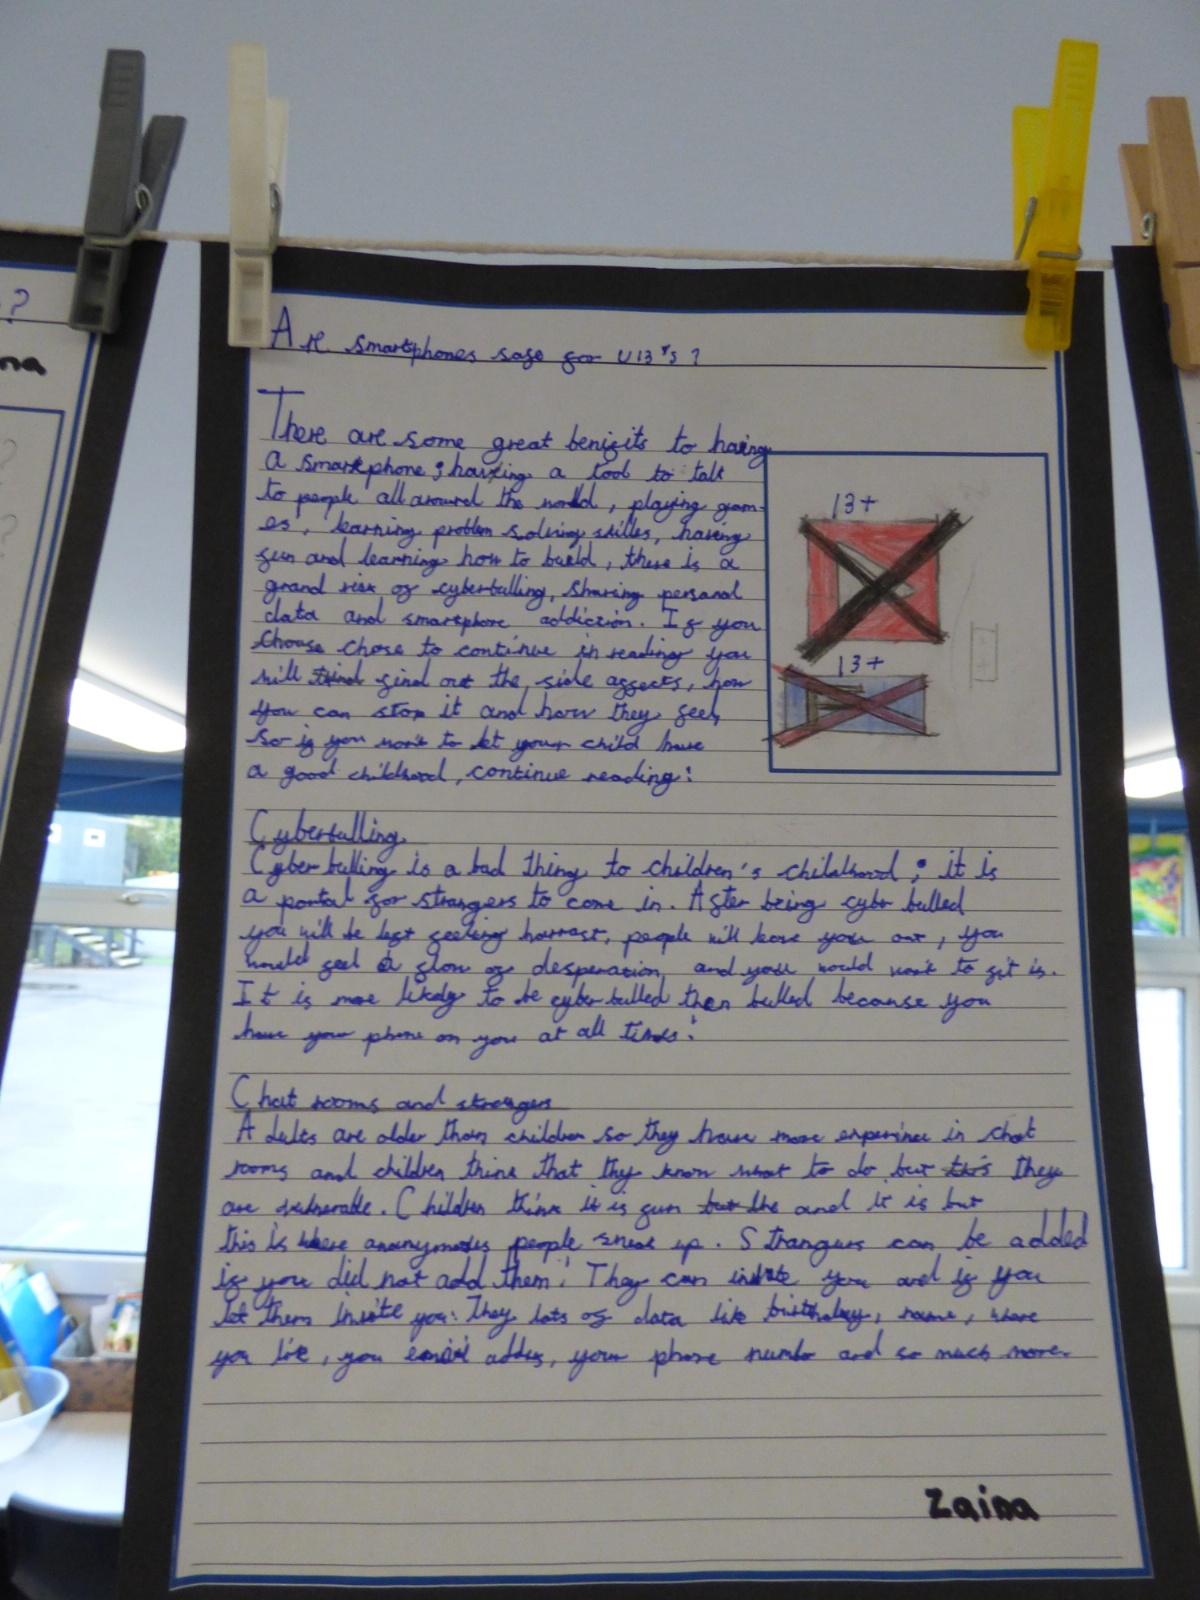 Are smartphones safe for U13's?
There are some great benifits to having
a smartphone; having a tool to talk
to people all around the world, playing gam-
es, learning problem solving skilles, having
fun and learning how to build, there is a
grand risk of cyberbulling, sharing personal
data and smartphone addiction. If you
choose chose to continue in reading you
will find out the side affects, how
you can stop it and how they feel,
so if you want to let your child have
a good childhood, continue reading!
13+
13+
Cyberbulling
Cyber bulling is a bad thing to children's childhood; it is
a portal for strangers to come in. After being cyber bulled
you will be left feeling , people will leave you out, you
would feel a glow of desperation, and you would want to fit in.
It is more likely to be cyber bulled then bulled because you
have your phone on you at all times!
Chat rooms and strangers
Adults are older than children so they have more experince in chat
rooms and children think that they know what to do but this they
are vulnerable. Children think it is fun but the and it is but
this is where anonymous people sneak up. Strangers can be added
if you did not add them! They can invite you and if you
let them invite you: They lots of data like birthday, name, where
you live, you email addes, your phone numbr and so much more.
Zaina
?
na